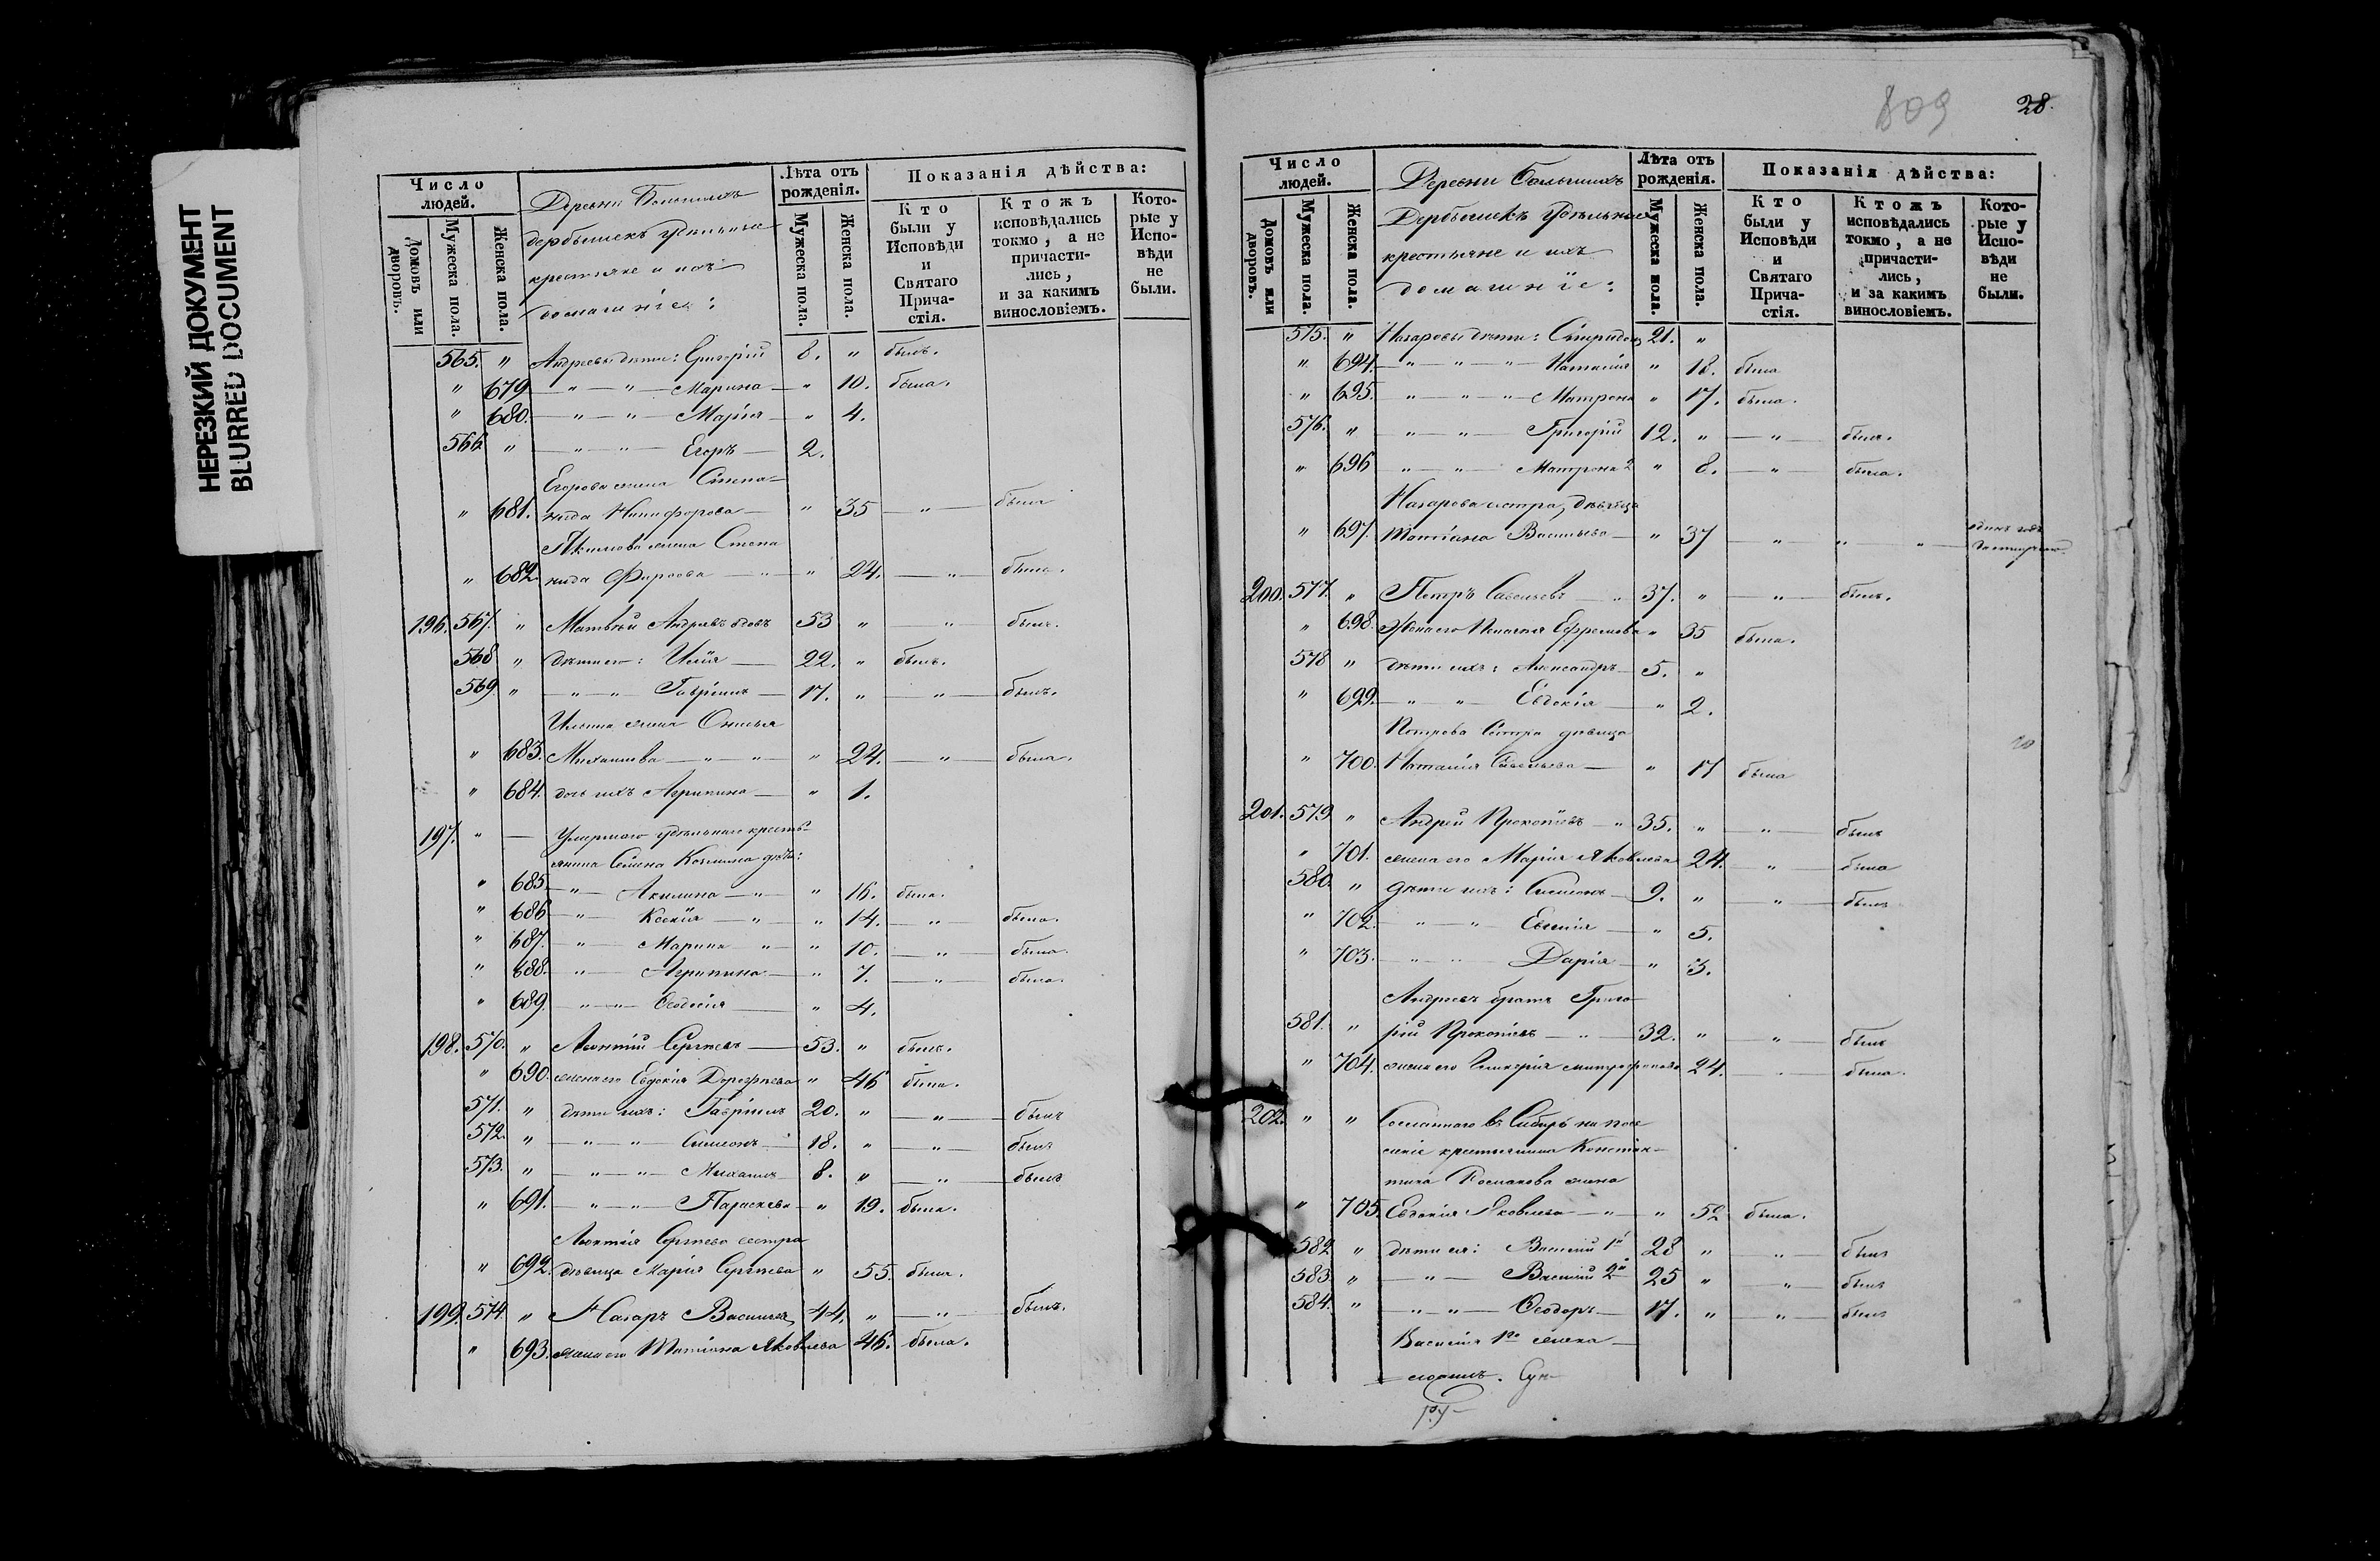 НЕРЕЗКИЙ ДОКУМЕНТ
BLURRED DOCUMENT
Число людей.
Домовъ или дворовъ.
Мужеска пола.
Женска пола.
Деревни Большихъ
дербышекъ удѣльные
крестьяне и ихъ
домашніе:
Лѣта отъ рожденія.
Мужеска пола.
Женска пола.
Показанія дѣйства:
Кто были у Исповѣди и Святаго Прича-стія.
Ктожъ исповѣдались токмо, а не причасти-лись, и за какимъ винословіемъ.
Кото-рые у Испо-вѣди не были.
565. " Андреевы дѣти: Григорій 8. " былъ.
" 679 " " Марина " 10. была.
" 680. " " Марія " 4.
566 " " " Егоръ 2.
Егорова жена Степа-
" 681. нида Никифорова " 35 " была
Акимова жена Степа
" 682. нида Фирсова " " 24. " была.
196. 567. " Матвѣй Андреевъ вдовъ 53 " " былъ.
568 " дѣти его: Илія 22. " былъ.
569. " " " Гавріилъ 17. " " былъ.
Ильина жена Онисья
" 683. Михаилова " " " 24. " была.
" 684. дочь ихъ Агрипина " 1.
197. " Умершаго удѣльнаго кресть-
янина Семена Козмина дѣти:
" 685. " Акилина " " 16. была.
" 686 " Ксенія " " 14. " была.
" 687. " Марина " " 10. " была.
" 688. " Агрипина " 7. " была.
" 689. " " Ѳеодосія " 4.
198. 570. " Леонтій Сергѣевъ 53. " былъ.
" 690. жена его Евдокія Дороѳеева " 46 была.
571. " дѣти ихъ: Гавріилъ 20. " " былъ
572. " " " Симеонъ 18. " " былъ
573. " " " Михаилъ 8. " " былъ
" 691. " " Параскева " 19. была.
Леонтія Сергѣева сестра
" 692. дѣвица Марія Сергѣева " 55. была.
199. 574. " Назаръ Васильевъ 44. " " былъ.
" 693. жена его Татіана Яковлева 46. была.
809 28.
Число людей.
Домовъ или дворовъ.
Мужеска пола.
Женска пола.
Деревни Большихъ
Дербышекъ удѣльные
крестьяне и ихъ
домашніе:
Лѣта отъ рожденія.
Мужеска пола.
Женска пола.
Показанія дѣйства:
Кто были у Исповѣди и Святаго Прича-стія.
Ктожъ исповѣдались токмо, а не причасти-лись, и за какимъ винословіемъ.
Кото-рые у Испо-вѣди не были.
575. " Назаровы дѣти: Спиридонъ 21. "
" 694. " " " Наталія " 18. была
" 695. " " " Матрона " 17. была.
576. " " " Григорій 12. " " былъ.
" 696 " " Матрона 2 " 8. " была.
Назарова сестра, дѣвица
" 697. Татіана Васильева " 37 " " "
200. 577. " Петръ Савельевъ " 37. " " былъ.
" 698. Жена его Пелагія Ефремова " 35 была.
578 " дѣти ихъ: Александръ 5. "
" 699. " " Евдокія " 2.
Петрова Сестра дѣвица
" 700. Наталія Савельева " 17 была
201. 579. " Андрей Прокопіевъ " 35. " " былъ
" 701. жена его Марія Яковлева 24. " была
580. " дѣти ихъ: Симеонъ 9. " " былъ
" 702. " " Евгенія " 5.
" 703. " " Дарія " 3.
Андреевъ братъ Григо-
581. " рій Прокопіевъ " 32. " " былъ
" 704. жена его Гликерія митрофанова 24. " была.
202. " " Сосланнаго въ Сибирь на посе
леніе крестьянина Констан-
тина жена
" 705. Евдокія Яковлева " " 52 была.
582 " дѣти ея: Василій 1й 28 " " былъ
583. " " Василій 2й 25 " " былъ
584. " " " Ѳеодоръ 17. " " былъ
Василія 1го жена